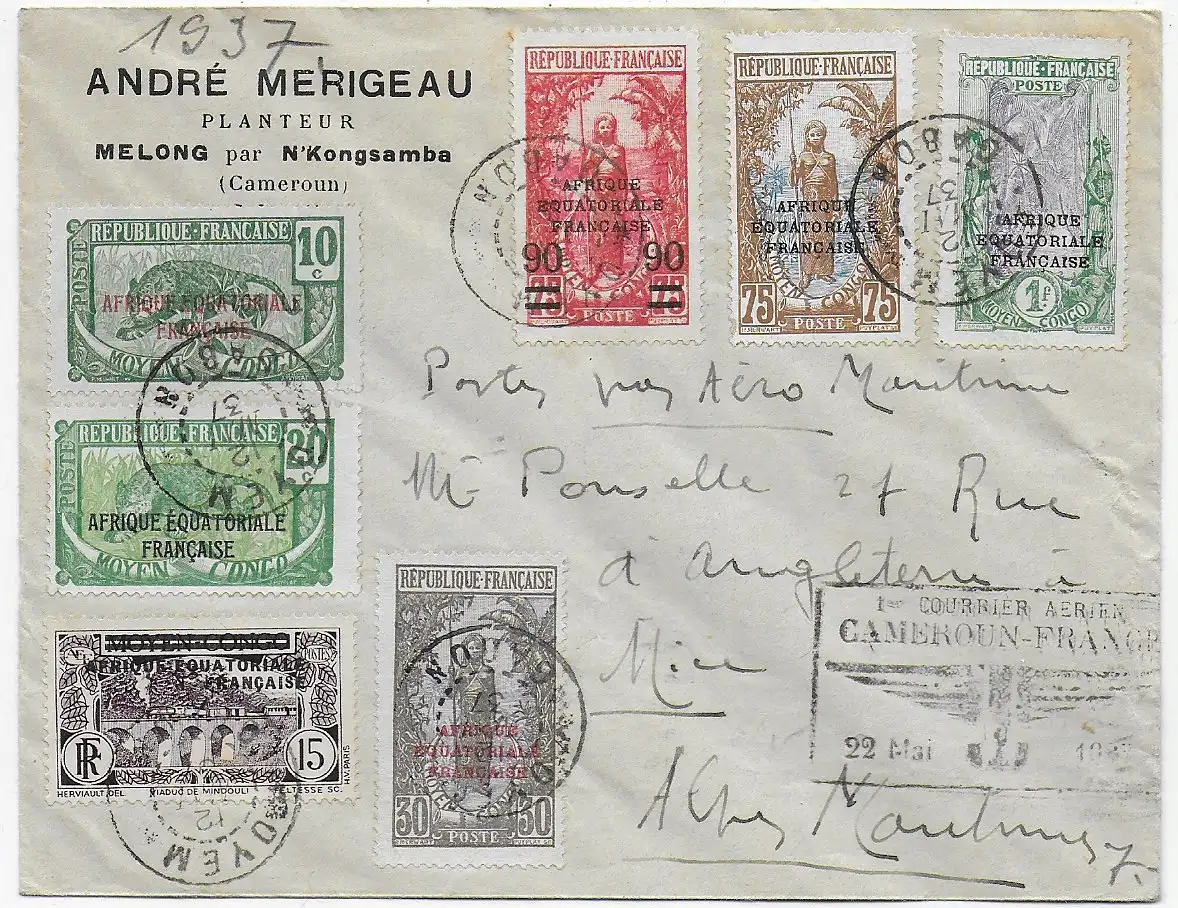 1937
ANDRÉ MERIGEAU
PLANTEUR
MELONG par N'Kongsamba
(Cameroun)
RÉPUBLIQUE·FRANÇAISE
AFRIQUE
EQUATORIALE
FRANÇAISE
90 90
75 75
MOYEN CONGO
POSTE
RÉPUBLIQUE·FRANÇAISE
AFRIQUE
EQUATORIALE
FRANÇAISE
MOYEN CONGO
75 POSTE 75
RÉPUBLIQUE·FRANÇAISE
POSTE
AFRIQUE
EQUATORIALE
FRANÇAISE
1F
MOYEN CONGO
GABON
OYEM
12
37
RÉPUBLIQUE·FRANÇAISE
10 c
POSTE
AFRIQUE ÉQUATORIALE
FRANÇAISE
MOYEN CONGO
GABON
37
RÉPUBLIQUE·FRANÇAISE
20 c
POSTE
AFRIQUE ÉQUATORIALE
FRANÇAISE
MOYEN CONGO
MOYEN-CONGO
AFRIQUE ÉQUATORIALE
FRANÇAISE
POSTES
RF
15
HERVIAULT DEL VIADUC DE MINDOULI
H.V. PARIS
12
OYEM
RÉPUBLIQUE·FRANÇAISE
AFRIQUE
EQUATORIALE
FRANÇAISE
MOYEN CONGO
30 POSTE 30
Aéro Maritime
Ponselle 27 Rue
d'Angleterre à
Nice
Alpes Maritimes
COURRIER AERIEN
CAMEROUN-FRANCE
22 Mai